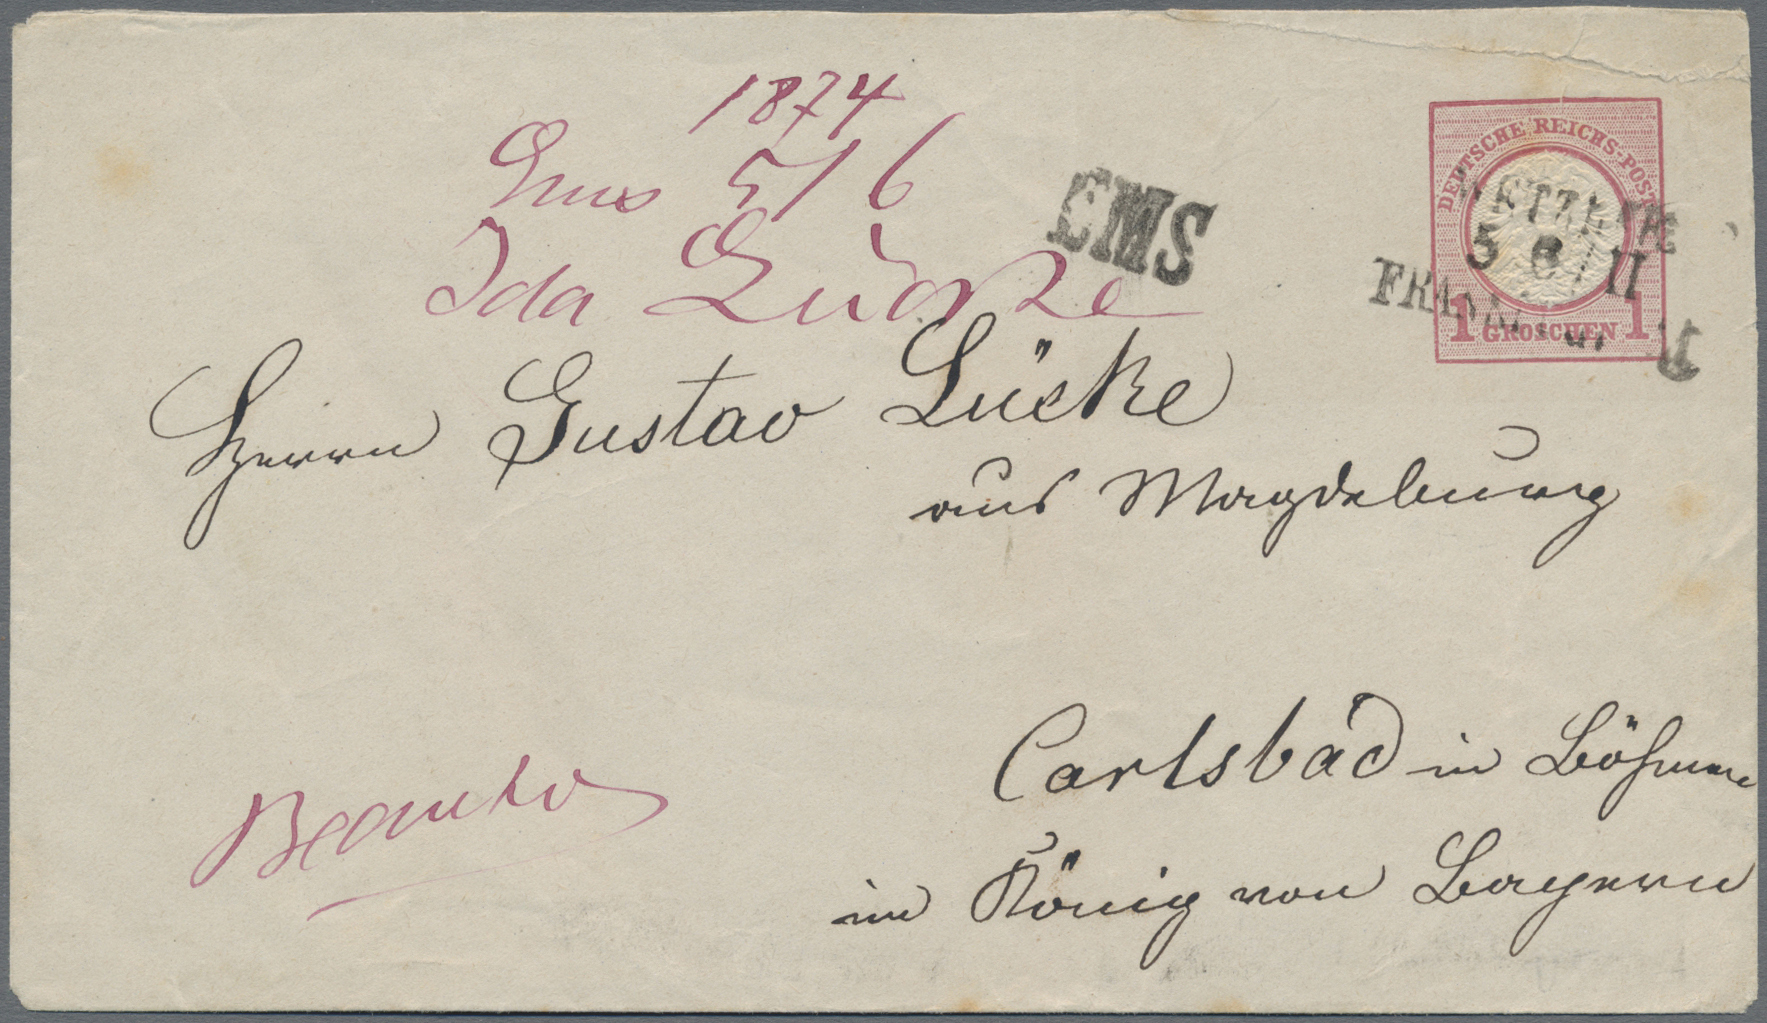 1874
Ems 5/6
Ida Lücke
EMS
DEUTSCHE REICHS-POST
5 6 II
1 GROSCHEN 1
Herrn Gustav Lücke
aus Magdeburg
Carlsbad in Böhmen
im König von Bayern